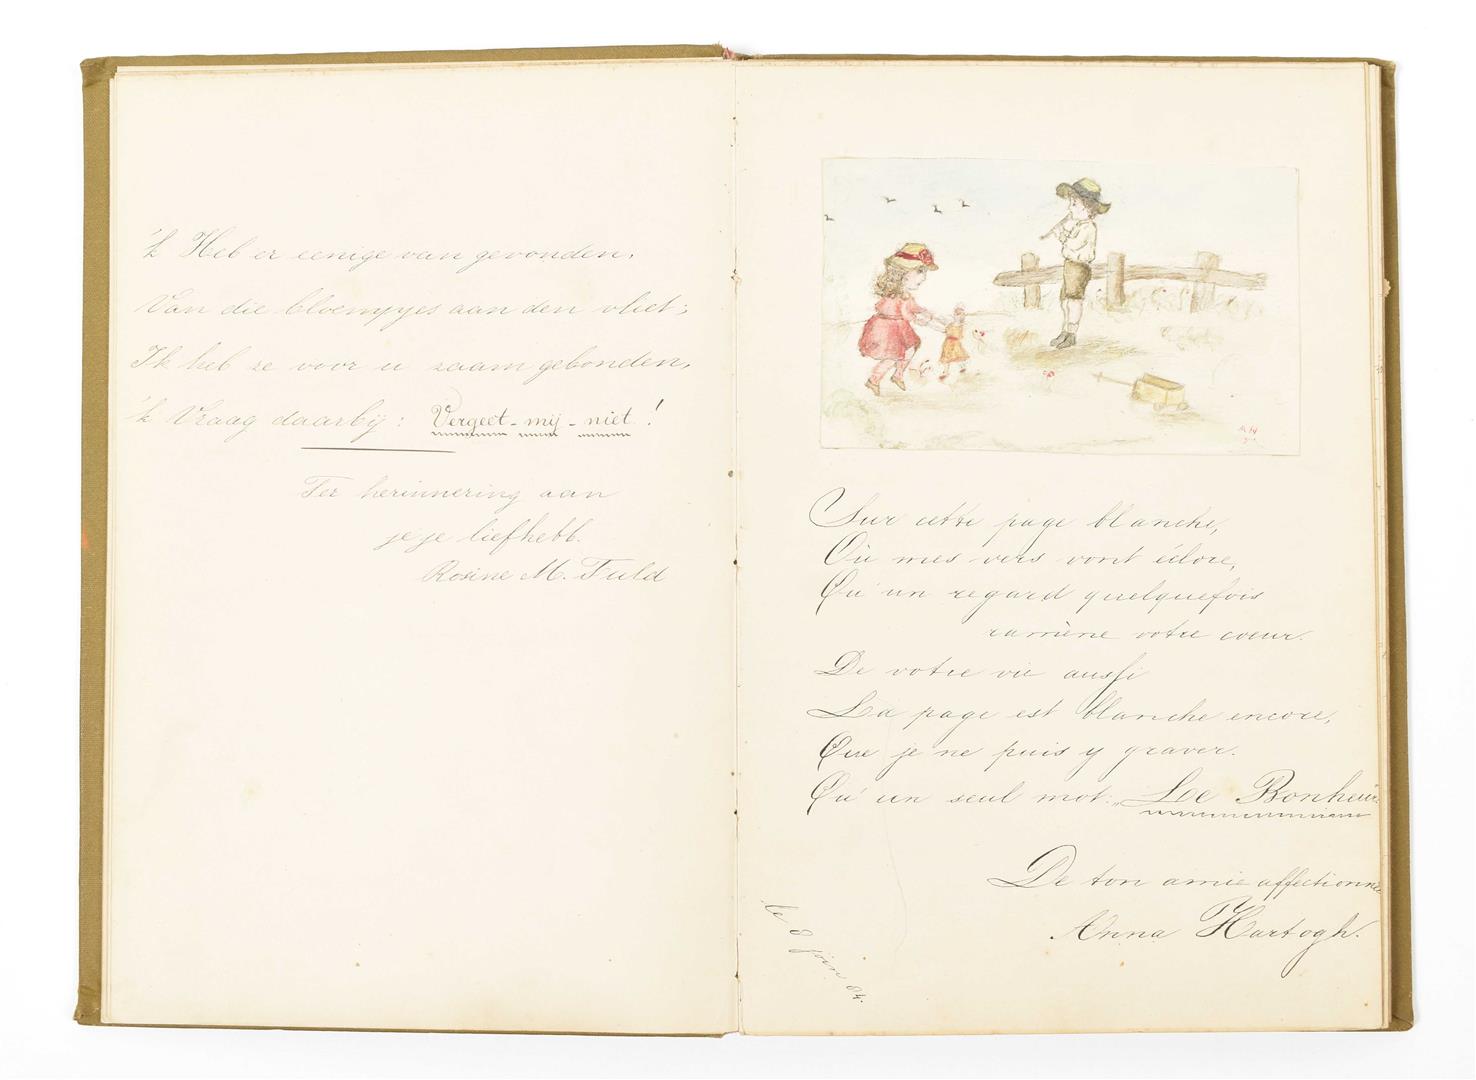 'k Heb er eenige van gevonden,
Van die bloempjes aan den vliet;
Ik heb ze voor u saam gebonden,
'k Vraag daarbij: Vergeet-mij-niet!
Ter herinnering aan
je je liefhebb.
Rosine M. Fuld
Sur cette page blanche,
Où mes vers vont éclore,
Qu'un regard quelquefois
ramène votre coeur.
De votre vie aussi
La page est blanche encore,
Que je ne puis y graver.
Qu'un seul mot: „Le Bonheur
De ton amie affectionnée
Anna Hartogh.
le 8 juin 84.